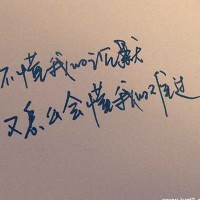 不懂我的沉默
又怎么会懂我的难过